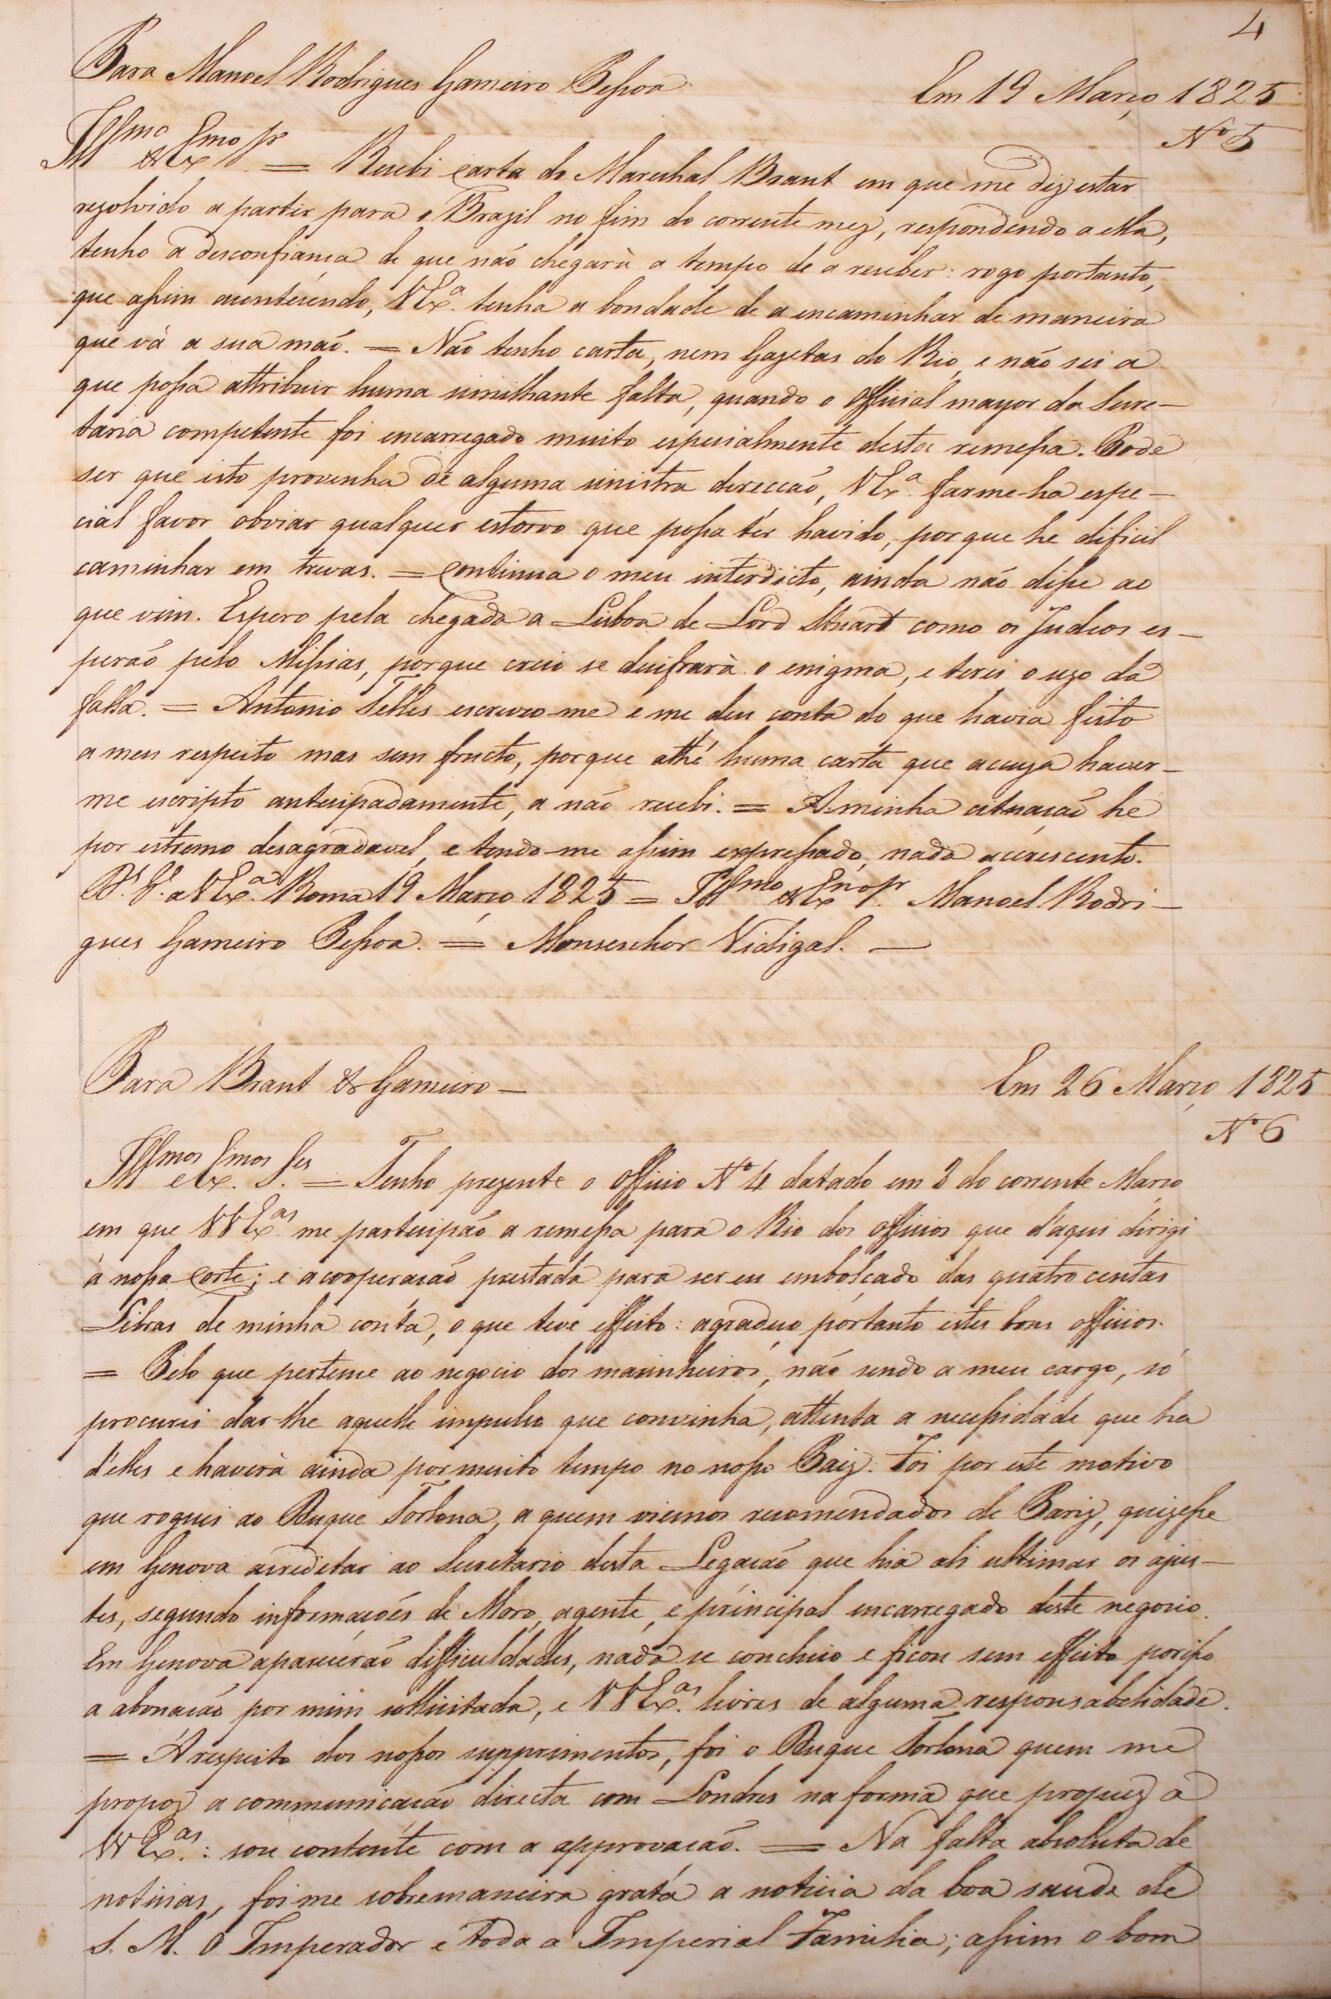 4
Para Manoel Rodrigues Gameiro Pessoa. Em 19 Março 1825
Nº 5
Illmo & Exmo Sr = Recebi carta do Marechal Brant em que me diz estar
rezolvido a partir para o Brazil no fim do corrente mez, respondendo a ella,
tenho a desconfiança de que não chegarà a tempo de a receber: rogo portanto,
que assim acontecendo, V Exa. tenha a bondade de a encaminhar de maneira
que và a sua mão. = Não tenho carta, nem Gazetas do Rio, e não sei a
que possa attribuir huma similhante falta, quando o Official mayor da Secre-
taria competente foi encarregado muito especialmente desta remessa. Pode
ser que isto provenha de alguma sinistra direcção, V Exa. farme-ha espe-
cial favor obviar qualquer estorvo que possa ter havido, porque he dificil
caminhar em trevas. = Continua o meu interdicto, ainda não disse ao
que vim. Espero pela chegada a Lisboa de Lord Stuard como os Judeos es-
perão pelo Missias, porque creio se decifrarà o enigma, e terei o uzo da
falla. = Antonio Telles escreveo me e me deu conta do que havia feito
a meu respeito mas sem fructo, porque athé huma carta que acuza haver-
me escripto antecipadamente, a não recebi. = A minha situação he
por estremo desagradavel, e tendo-me assim expressado, nada accrescento.
Ds. Ge. a V Exa. Roma 19 Março 1825 = Illmo & Exmo Sr. Manoel Rodri-
gues Gameiro Pessoa. = Monsenhor Vidigal. —
Para Brant & Gameiro — Em 26 Março 1825
Nº 6
Illmos e Exmos Sres. = Tenho prezente o Officio Nº 4 datado em 2 do corrente Março
em que VV Exas. me participão a remessa para o Rio dos officios que d'aqui dirigi
à nossa Corte; e a cooperação prestada para ser eu embolçado das quatro centas
Libras de minha conta, o que teve effeito: agradeço portanto estes bons officios.
= Pelo que pertence ao negocio dos marinheiros, não sendo a meu cargo, só
procurei dar-lhe aquelle impulso que convinha, attenta a necessidade que ha
d'elles e haverà ainda por muito tempo no nosso Paiz. Foi por este motivo
que roguei ao Duque Torlona, a quem viemos recomendados de Pariz, quizesse
em Genova acreditar ao Secretario desta Legação que hia ali ultimar os ajus-
tes, segundo informações de Moro, agente, e principal encarregado deste negocio.
Em Genova aparecerão difficuldades, nada se concluio e ficou sem effeito porisso
a abonação por mim sollicitada, e VV Exas. livres de alguma responsabelidade.
= A respeito dos nossos supprimentos, foi o Duque Torlona quem me
propoz a communicação directa com Londres na forma que propuz a
VV Exas.: sou contente com a approvação. = Na falta absoluta de
noticias, foi me sobremaneira grata a noticia da boa saude de
S. M. O Imperador e toda a Imperial Familia; assim o bom